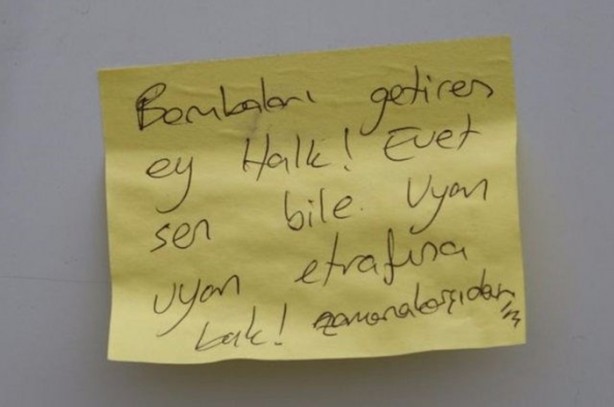 Bombaları getiren
ey Halk! Evet
sen bile. Uyan
uyan etrafına
bak!